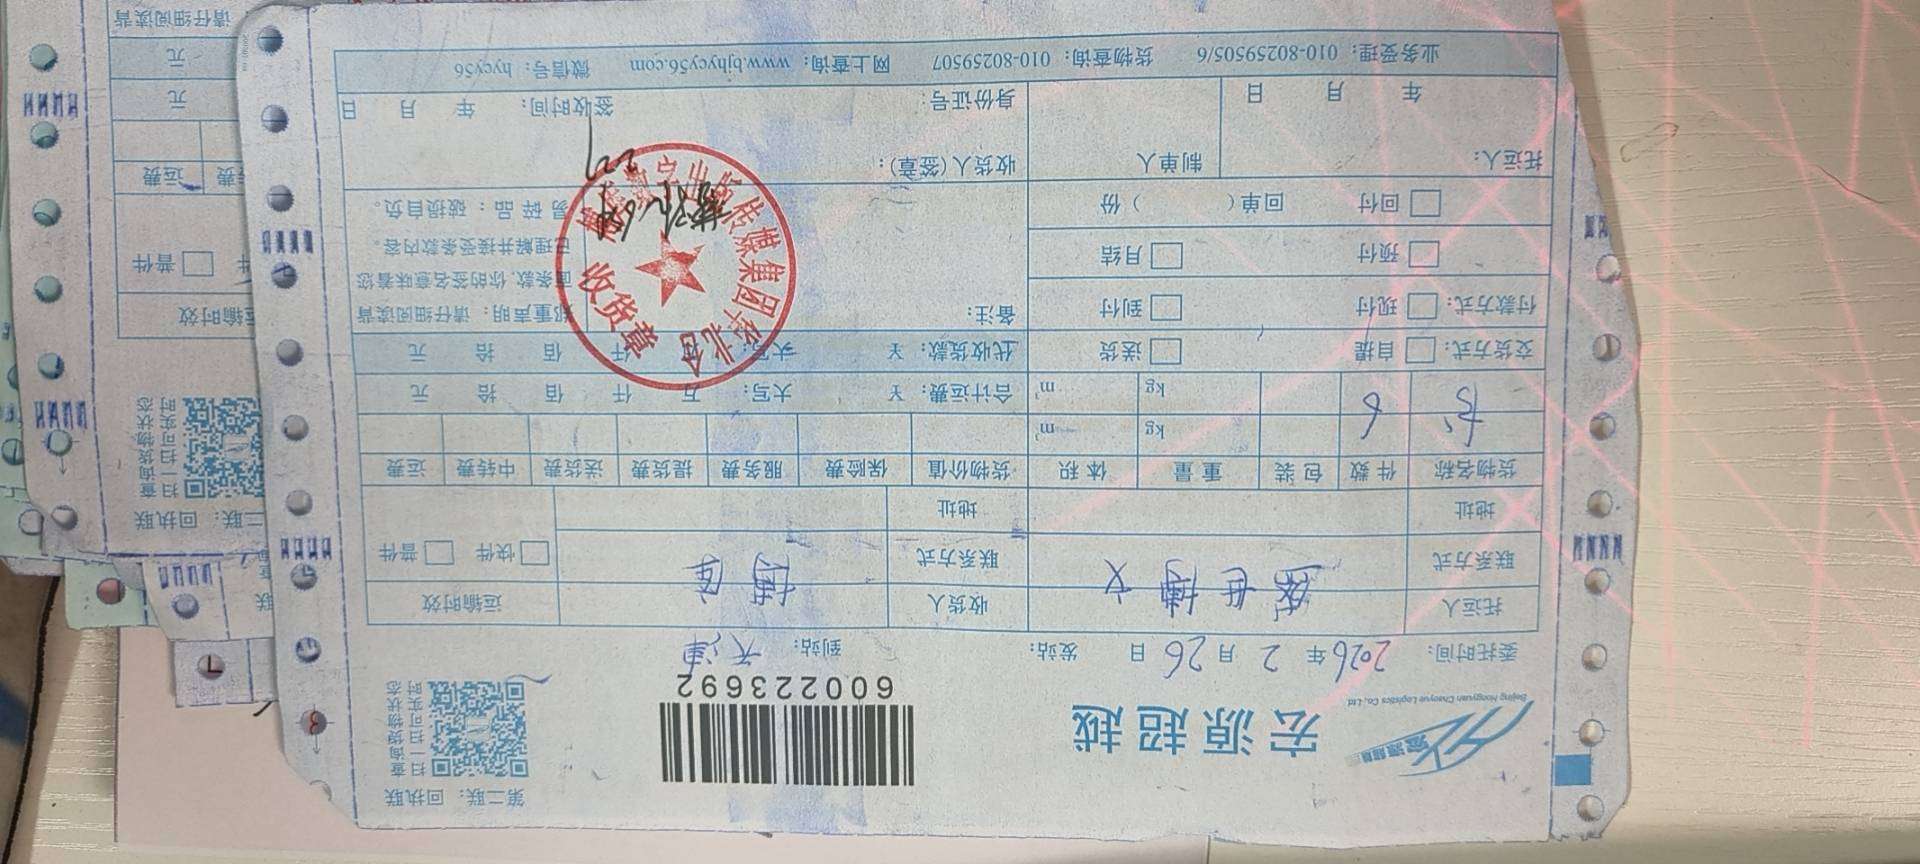 第二联：回执联
宏源超越
Beijing Hongyuan Chaoyue Logistics Co., Ltd
600223692
扫一扫 可实时
查询货物状态
委托时间：2026年2月26日 发站： 到站：天津
托运人 世博文 收货人 博 运输时效
联系方式 联系方式 快件 普件
地址 地址
货物名称 件数 包装 重量 体积 货物价值 保险费 服务费 提货费 送货费 中转费 运费
书 6 kg m³
kg m³ 合计运费：¥ 大写： 万 仟 佰 拾 元
交货方式： 自提 送货 代收货款：¥ 大写： 万 仟 佰 拾 元
付款方式： 现付 到付 备注：
预付 月结
回付 回单（ ）份
郑重声明：请仔细阅读背
面条款，你的签名意味着您
已理解并接受条款内容。
易碎品：破损自负。
出版传媒集团华北
收货章
托运人： 制单人 收货人（签章）：
年 月 日 身份证号： 签收时间： 年 月 日
业务受理：010-80259505/6 货物查询：010-80259507 网上查询：www.bjhycy56.com 微信号：hycy56
二联：回执联
扫一扫 可实时
查询货物状态
运输时效
普件
运费
元
元
请仔细阅读背